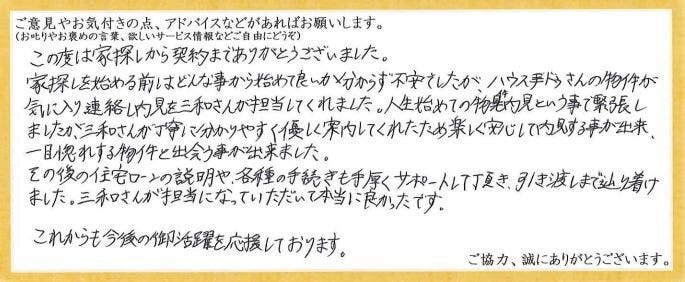 ご意見やお気付きの点、アドバイスなどがあればお願いします。
(お叱りやお褒めの言葉、欲しいサービス情報などご自由にどうぞ)
この度は家探しから契約までありがとうございました。
家探しを始める前はどんな事から始めて良いか分からず不安でしたが、ハウスドゥさんの物件が
気に入り連絡し内見を三和さんが担当してくれました。人生始めての物件内見という事で緊張し
ましたが三和さんが丁寧に分かりやすく優しく案内してくれたため楽しく安心して内見する事が出来、
一目惚れする物件と出会う事が出来ました。
その後の住宅ローンの説明や、各種の手続きも手厚くサポートして頂き、引き渡しまで辿り着け
ました。三和さんが担当になっていただいて本当に良かったです。
これからも今後の御活躍を応援しております。
ご協力、誠にありがとうございます。